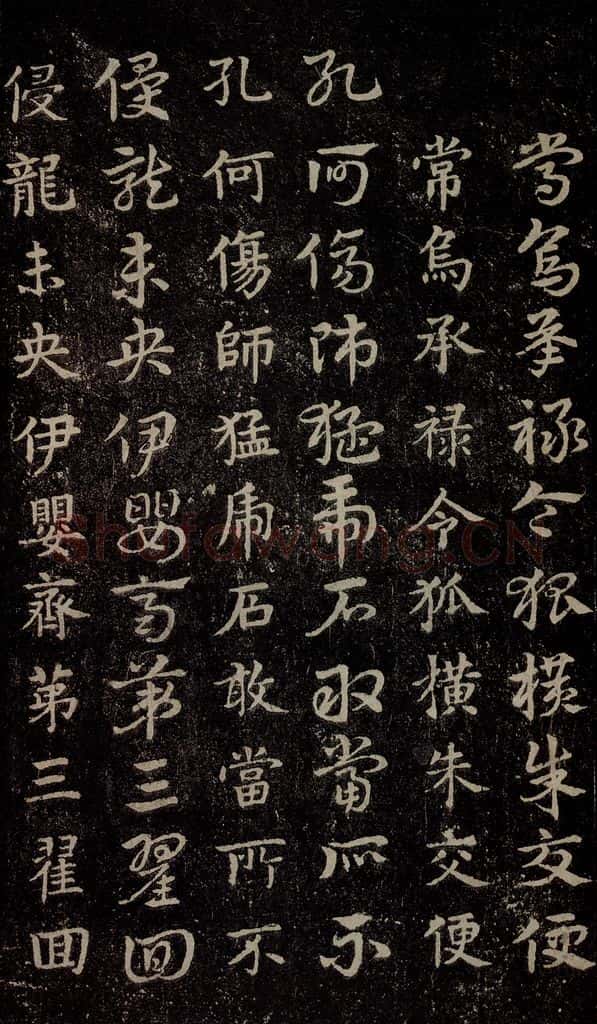 常烏承禄令狐横朱交便
常烏承禄令狐横朱交便
孔何傷師猛虎石敢當所不
孔何傷師猛虎石敢當所不
侵龍未央伊嬰齊苐三翟囬
侵龍未央伊嬰齊苐三翟囬
Shufawang.CN